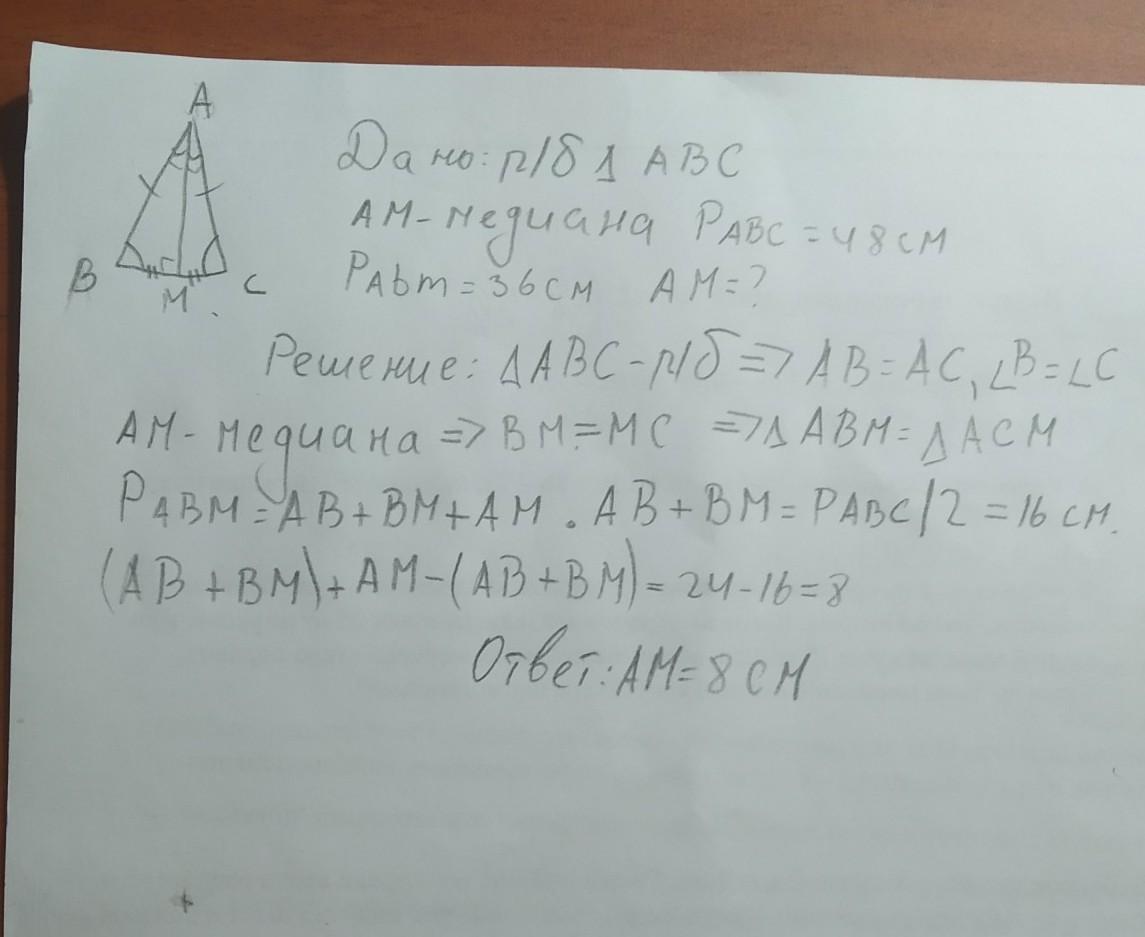 A
B
M
C
Дано: р/б Δ ABC
AM - медиана PABC = 48 см
PAbm = 36 см AM = ?
Решение: ΔABC - р/б => AB = AC, ∠B = ∠C
AM - медиана => BM = MC => Δ ABM = Δ ACM
PABM = AB + BM + AM. AB + BM = PABC/2 = 16 см.
(AB + BM) + AM - (AB + BM) = 24 - 16 = 8
Ответ: AM = 8 см